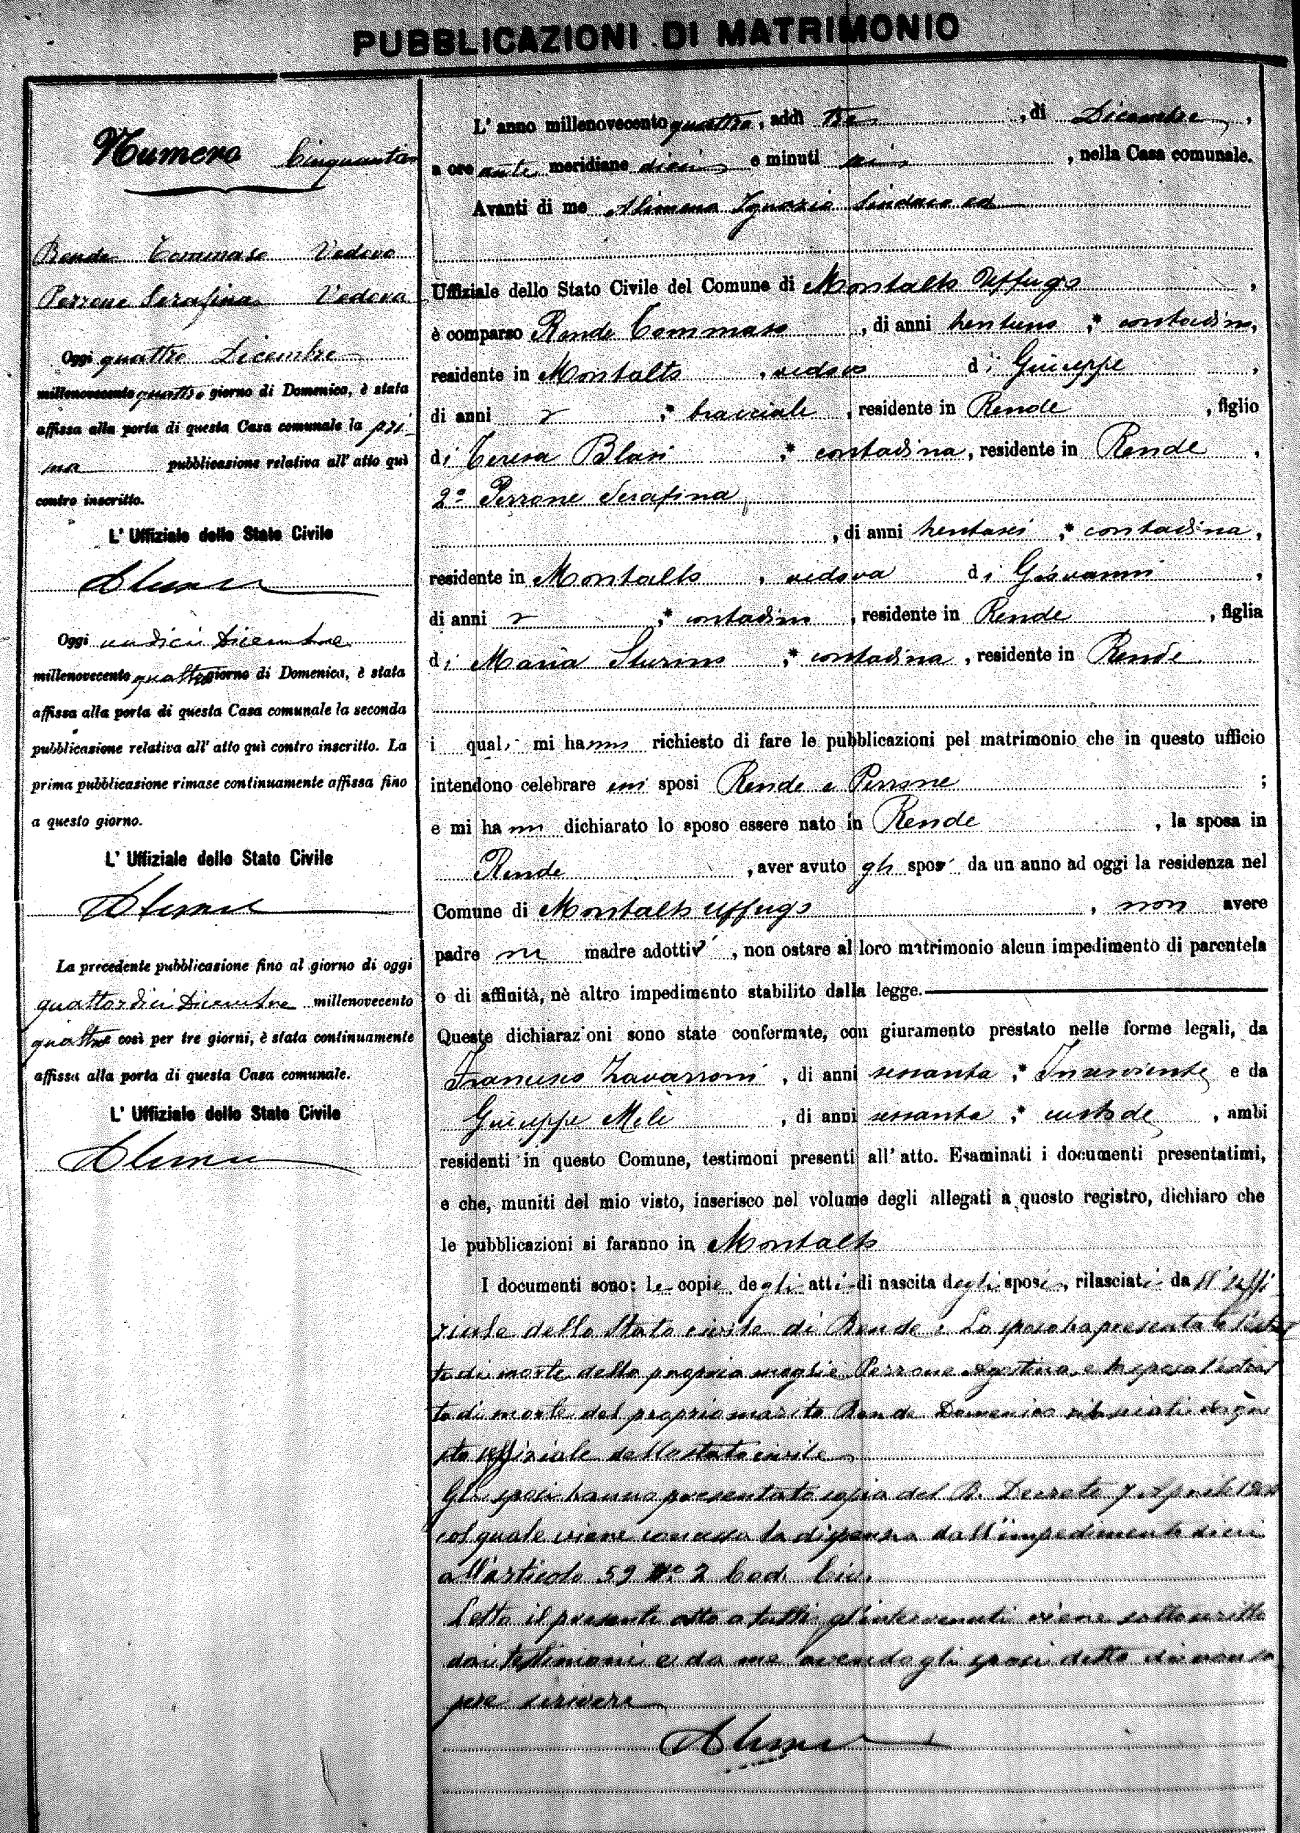 PUBBLICAZIONI DI MATRIMONIO
Numero Cinquanta
Rende Tommaso Vedovo
Perrone Serafina Vedova
Oggi quattro Dicembre
millenovecento quattro giorno di Domenica, è stata
affissa alla porta di questa Casa comunale la pri-
ma pubblicazione relativa all' atto quì
contro inscritto.
L' Uffiziale dello Stato Civile
Oggi undici Dicembre
millenovecento quattro giorno di Domenica, è stata
affissa alla porta di questa Casa comunale la seconda
pubblicazione relativa all' atto quì contro inscritto. La
prima pubblicazione rimase continuamente affissa fino
a questo giorno.
L' Uffiziale dello Stato Civile
La precedente pubblicazione fino al giorno di oggi
quattordici Dicembre millenovecento
quattro così per tre giorni, è stata continuamente
affissa alla porta di questa Casa comunale.
L' Uffiziale dello Stato Civile
L' anno millenovecento quattro, addì tre, di Dicembre,
a ore ante meridiane dieci e minuti , nella Casa comunale.
Avanti di me Alimena Ignazio Sindaco ed
Uffiziale dello Stato Civile del Comune di Montalto Uffugo,
è comparso Rende Tommaso, di anni trentuno, * contadino,
residente in Montalto, vedovo di Giuseppe,
di anni , * bracciale, residente in Rende, figlio
di Teresa Blasi, * contadina, residente in Rende,
2° Perrone Serafina
, di anni trentasei, * contadina,
residente in Montalto, vedova di Giovanni,
di anni , * contadino, residente in Rende, figlia
di Maria Sturino, * contadina, residente in Rende
i quali mi hanno richiesto di fare le pubblicazioni pel matrimonio che in questo ufficio
intendono celebrare essi sposi Rende e Perrone ;
e mi hanno dichiarato lo sposo essere nato in Rende, la sposa in
Rende, aver avuto gli sposi da un anno ad oggi la residenza nel
Comune di Montalto Uffugo, non avere
padre nè madre adottivi, non ostare al loro matrimonio alcun impedimento di parentela
o di affinità, nè altro impedimento stabilito dalla legge.
Queste dichiarazioni sono state confermate, con giuramento prestato nelle forme legali, da
Francesco Zavarroni, di anni sessanta, * Inserviente e da
Giuseppe Mele, di anni sessanta, * custode, ambi
residenti in questo Comune, testimoni presenti all' atto. Esaminati i documenti presentatimi,
e che, muniti del mio visto, inserisco nel volume degli allegati a questo registro, dichiaro che
le pubblicazioni si faranno in Montalto
I documenti sono: le copie degli atti di nascita degli sposi, rilasciati dall'uffi-
ziale dello Stato civile di Rende. Lo sposo ha presentato l'estrat
to di morte della propria moglie Perrone Agostina, e la sposa l'estrat
to di morte del proprio marito Rende Domenico rilasciati da que
sto uffiziale dello stato civile
Gli sposi hanno presentato copia del R. Decreto 7 Aprile
col quale viene concessa la dispensa dall'impedimento di cui
all'articolo 59 N° 2 Cod. Civ.
Letto il presente atto a tutti gl'intervenuti viene sottoscritto
dai testimoni e da me avendo gli sposi detto di non sa
pere scrivere